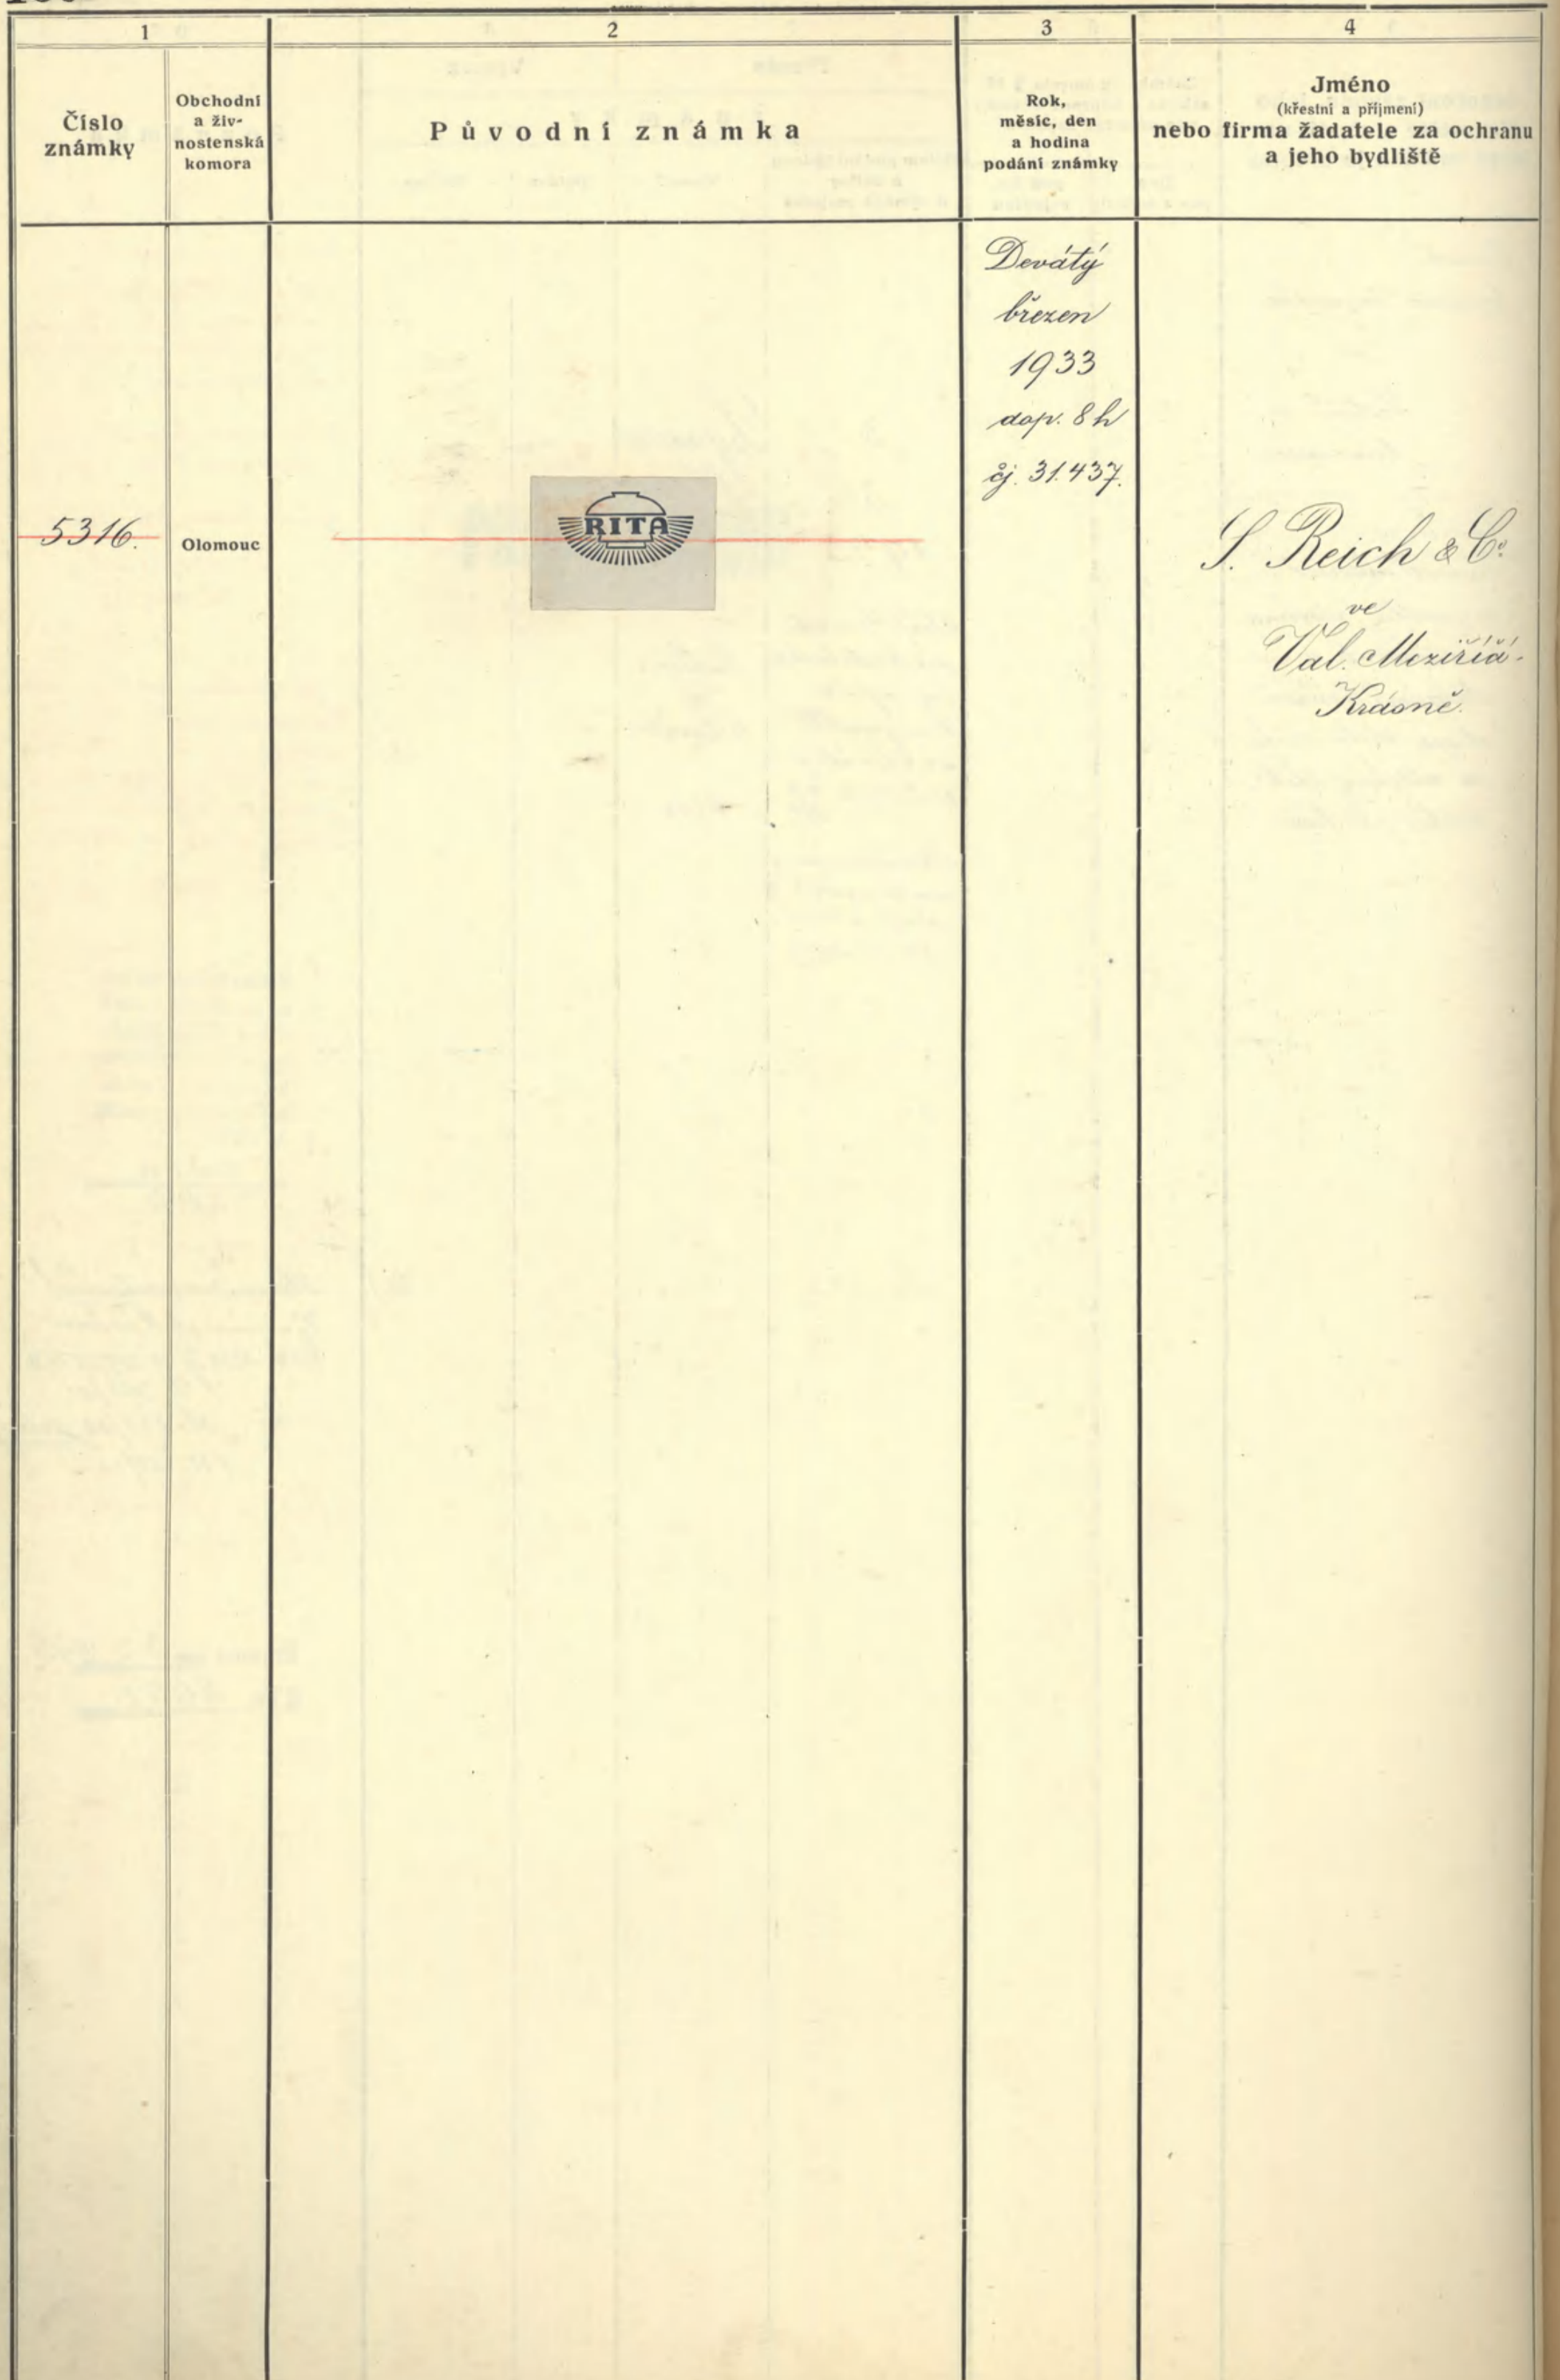 1
2
3
4
Číslo
známky
Obchodní
a živ-
nostenská
komora
Původní známka
Rok,
měsíc, den
a hodina
podání známky
Jméno
(křestní a příjmení)
nebo firma žadatele za ochranu
a jeho bydliště
Devátý
březen
1933
dop. 8 h
čj. 31.437.
5316.
Olomouc
RITA
S. Reich & Co.
ve
Val. Meziříčí-
Krásně.